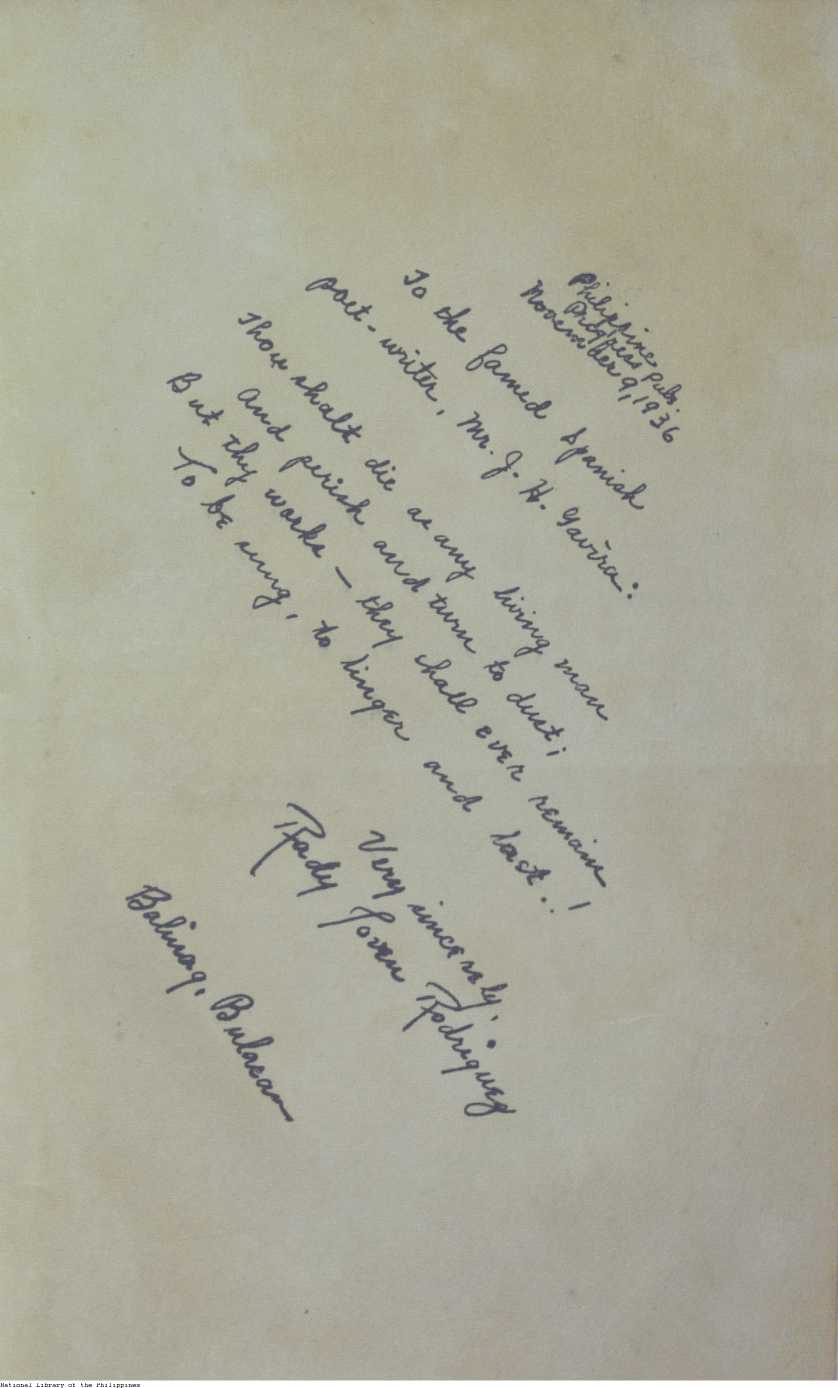 Philippine
Progress Pub.
November 9, 1936
To the famed Spanish
poet-writer, Mr. J. H. Gavira:
Thou shalt die as any living man
And perish and turn to dust;
But thy works — they shall ever remain
To be sung, to linger and last..!
Very sincerely,
Rady Joven Rodriguez
Baliuag, Bulacan
National Library of the Philippines